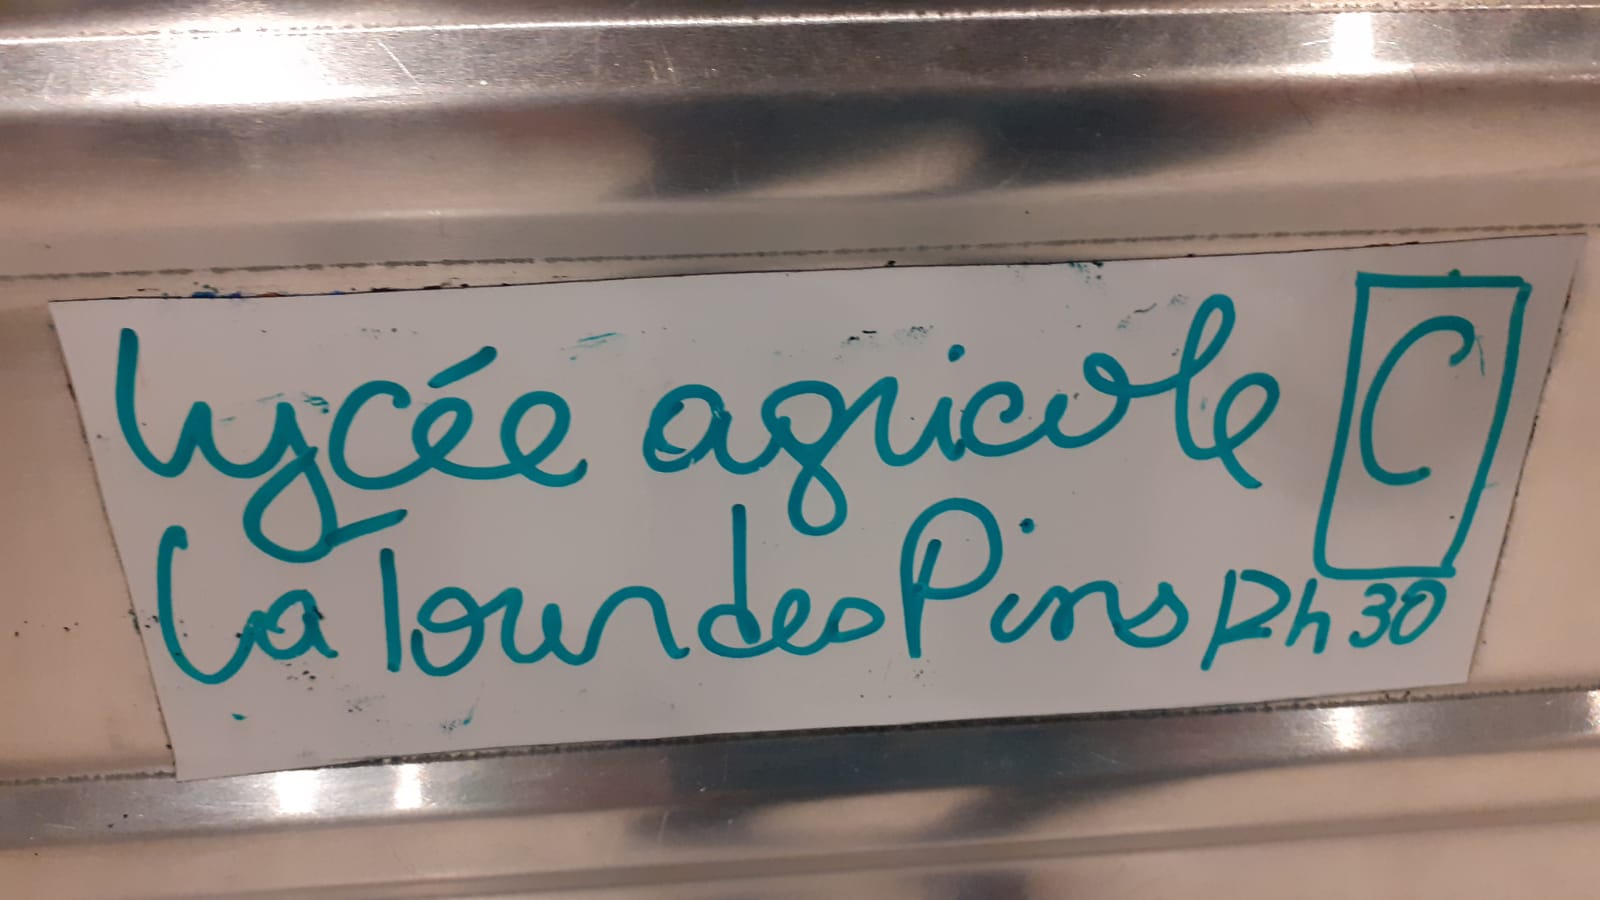 Lycée agricole C
La Tour des Pins 12h30